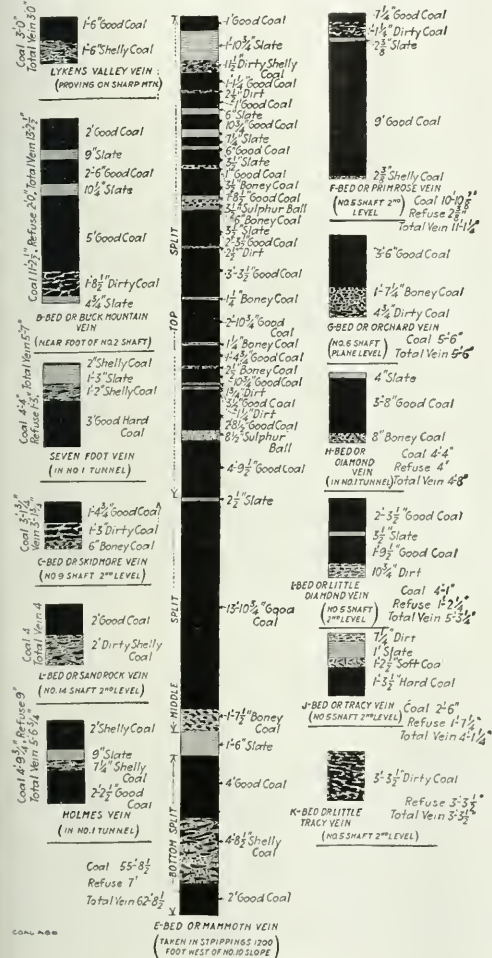 Coal 3'-0"
Total Vein 3'0"
1'-6"Good Coal
1'-6"Shelly Coal
LYKENS VALLEY VEIN
(PROVING ON SHARP MTN)
Coal 11'-2½", Refuse 2'0", Total Vein 13'-2½"
2'Good Coal
9"Slate
2'-6"Good Coal
10¼"Slate
5'Good Coal
1'-8½"Dirty Coal
4¾"Slate
B-BED OR BUCK MOUNTAIN
VEIN
(NEAR FOOT OF NO.2 SHAFT)
Coal 4'-4"
Refuse 1'-3"
Total Vein 5'-7"
2"Shelly Coal
1'-3"Slate
1'-2"Shelly Coal
3'Good Hard
Coal
SEVEN FOOT VEIN
(IN NO 1 TUNNEL)
Coal 3'-1¾"
Vein 3'-1¾"
1'-4¾"Good Coal
1'-3"Dirty Coal
6"Boney Coal
C-BED OR SKIDMORE VEIN
(NO 9 SHAFT 2ND LEVEL)
Coal 4
Total Vein 4
2'Good Coal
2'Dirty Shelly
Coal
L-BED OR SANDROCK VEIN
(NO.14 SHAFT 2ND LEVEL)
Coal 4'-9¾", Refuse 9"
Total Vein 5'-6¾"
2'Shelly Coal
9"Slate
7¼"Shelly
Coal
2'-2½"Good
Coal
HOLMES VEIN
(IN NO.1 TUNNEL)
Coal 55'-8½
Refuse 7'
Total Vein 62'-8½
COAL AGE
TOP SPLIT
MIDDLE SPLIT
BOTTOM SPLIT
1'Good Coal
1'-10¾"Slate
11½"Dirty Shelly
Coal
1'-1¼"Good Coal
2½"Dirt
1"Good Coal
6"Slate
10¾"Good Coal
7¼"Slate
6"Good Coal
3½"Slate
1"Good Coal
3½"Boney Coal
1'-8½"Good Coal
3½"Sulphur Ball
6"Boney Coal
3½"Slate
2'-3½"Good Coal
2½"Dirt
3'-3½"Good Coal
1¼"Boney Coal
2'-10¾"Good
Coal
1¼"Boney Coal
1'-4¾"Good Coal
2½"Boney Coal
10¾"Good Coal
1¾"Dirt
Good Coal
Dirt
2'8½"Good Coal
8½"Sulphur
Ball
4'-9½"Good Coal
2½"Slate
13'-10¾"Good
Coal
1'-7½"Boney
Coal
1'-6"Slate
4'Good Coal
4'-8½"Shelly
Coal
2'Good Coal
E-BED OR MAMMOTH VEIN
(TAKEN IN STRIPPINGS 1200
FOOT WEST OF NO.10 SLOPE)
7¼"Good Coal
1'-1¼"Dirty Coal
2⅜"Slate
9'Good Coal
2⅜"Shelly Coal
F-BED OR PRIMROSE VEIN
(NO.5 SHAFT 2ND
LEVEL)
Coal 10'-10⅞"
Refuse 2⅜"
Total Vein 11'-1¼"
3'-6"Good Coal
1'-7¼"Boney Coal
4¾"Dirty Coal
G-BED OR ORCHARD VEIN
(NO.6 SHAFT
PLANE LEVEL)
Coal 5'-6"
Total Vein 5'-6"
4"Slate
3'-8"Good Coal
8"Boney Coal
H-BED OR
DIAMOND
VEIN
(IN NO.1 TUNNEL)
Coal 4'-4"
Refuse 4"
Total Vein 4'-8"
2'-3½"Good Coal
3½"Slate
1'-9½"Good Coal
10¾"Dirt
I-BED OR LITTLE
DIAMOND VEIN
(NO 5 SHAFT
2ND LEVEL)
Coal 4'-1"
Refuse 1'-2¼"
Total Vein 5'-3¼"
7¼"Dirt
1'Slate
1'-2½"Soft Coal
1'-3½"Hard Coal
J-BED OR TRACY VEIN
(NO.5 SHAFT 2ND LEVEL)
Coal 2'-6"
Refuse 1'-7¼"
Total Vein 4'-1¼"
3'-3½"Dirty Coal
K-BED OR LITTLE
TRACY VEIN
(NO.5 SHAFT 2ND LEVEL)
Refuse 3'-3½"
Total Vein 3'-3½"